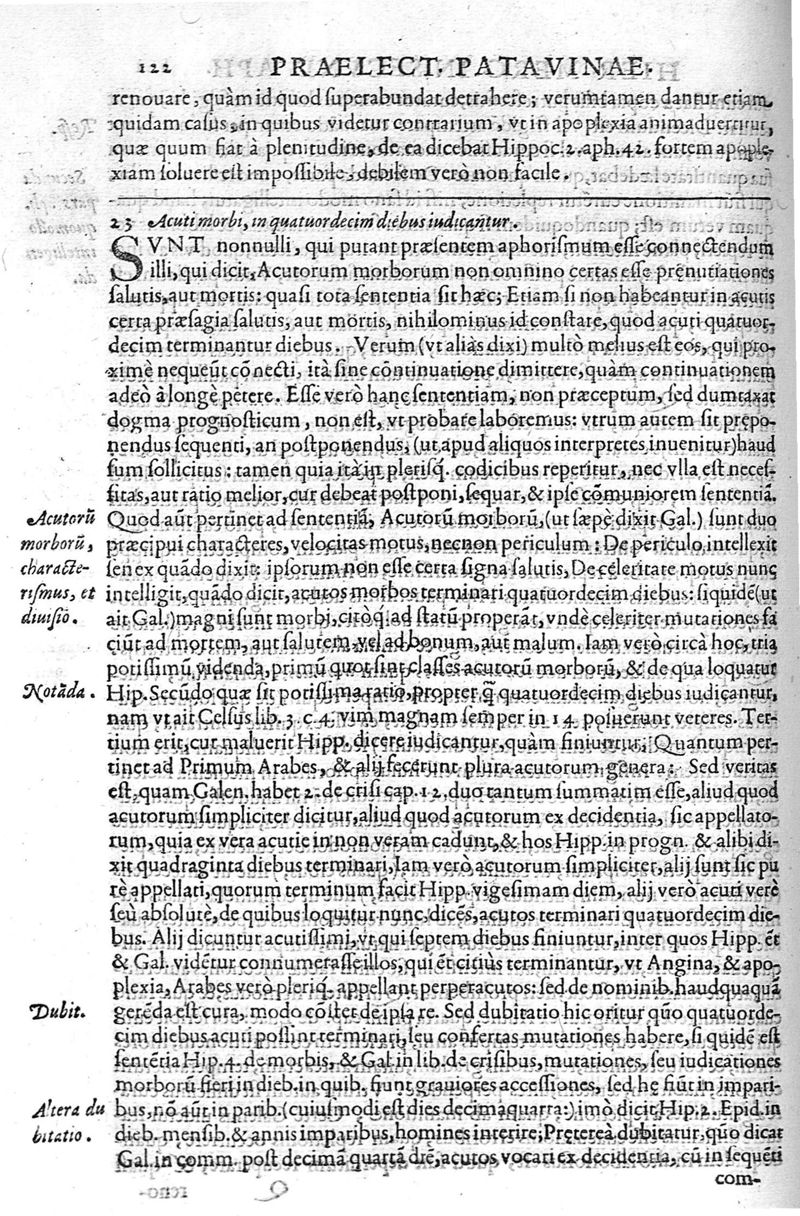 122 PRAELECT. PATAVINAE.
renouare, quàm id quod superabundat detrahere; verumtamen dantur etiam
quidam casus, in quibus videtur contrarium, vt in apoplexia animaduertitur,
quæ quum fiat à plenitudine, de ea dicebat Hippoc. 2. aph. 42. fortem apople-
xiam soluere est impossibile, debilem verò non facile.
23 Acuti morbi, in quatuordecim diebus iudicantur.
SVNT nonnulli, qui putant præsentem aphorismum esse connectendum
illi, qui dicit, Acutorum morborum non omnino certas esse pręnutiationes
salutis, aut mortis: quasi tota sententia sit hæc; Etiam si non habeantur in acutis
certa præsagia salutis, aut mortis, nihilominus id constare, quod acuti quatuor-
decim terminantur diebus. Verum (vt aliàs dixi) multò melius est eos, qui pro-
ximè nequeūt cōnecti, ità sine cōntinuatione dimittere, quàm continuationem
adeò à longè petere. Esse verò hanc sententiam, non præceptum, sed dumtaxat
dogma prognosticum, non est, vt probare laboremus: vtrum autem sit prępo-
nendus sequenti, an postponendus, (ut apud aliquos interpretes inuenitur) haud
sum sollicitus: tamen quia ità in plerisq́. codicibus reperitur, nec vlla est neces-
sitas, aut ratio melior, cur debeat postponi, sequar, & ipse cōmuniorem sententiā.
Acutorū Quod aūt pertinet ad sententiā; Acutorū morborū, (ut sæpè dixit Gal.) sunt duo
morborū, præcipui characteres, velocitas motus, necnon periculum: De periculo, intellexit
characte- sen ex quādo dixit: ipsorum non esse certa signa salutis, De celeritate motus nunc
rismus, et intelligit, quādo dicit, acutos morbos terminari quatuordecim diebus: siquidē (ut
diuisio. ait Gal.) magni sunt morbi, citòq́; ad statū properāt, vndè celeriter mutationes fa
ciūt ad mortem, aut salutem, vel ad bonum, aut malum. Iam verò circà hoc, tria
potissimū videnda, primū quot sint classes acutorū morborū, & de qua loquatur
Notāda. Hip. Secūdo quæ sit potissima ratio, propter q̄ quatuordecim diebus iudicantur,
nam vt ait Celsus lib. 3. c. 4. vim magnam semper in 14. posuerunt veteres. Ter-
tium erit, cur maluerit Hipp. dicere iudicantur, quàm finiuntur; Quantum per-
tinet ad Primum Arabes, & alij fecerunt plura acutorum genera: Sed veritas
est, quam Galen. habet 2. de crisi cap. 12. duo tantum summatim esse, aliud quod
acutorum simpliciter dicitur, aliud quod acutorum ex decidentia, sic appellato-
rum, quia ex vera acutie in non veram cadunt, & hos Hipp. in progn. & alibi di-
xit quadraginta diebus terminari, Iam verò acutorum simpliciter, alij sunt sic pu
rè appellati, quorum terminum facit Hipp. vigesimam diem, alij verò acuti verè
seù absolutè, de quibus loquitur nunc, dicēs, acutos terminari quatuordecim die-
bus. Alij dicuntur acutissimi, vt qui septem diebus finiuntur, inter quos Hipp. ēt
& Gal. vidētur connumerasse illos, qui ēt citiùs terminantur, vt Angina, & apo-
plexia, Arabes verò pleriq́. appellant peracutos: sed de nominib. haudquaquā
Dubit. gerēda est cura, modo cōstet de ipsa re. Sed dubitatio hic oritur quō quatuorde-
cim diebus acuti possint terminari, seu confertas mutationes habere, si quidē est
sentētia Hip. 4. de morbis, & Gal. in lib. de crisibus, mutationes, seu iudicationes
morborū fieri in dieb. in quib. fiunt grauiores accessiones, sed hę fiūt in impari-
Altera du bus, nō aūt in parib. (cuiusmodi est dies decimaquarta:) imò dicit Hip. 2. Epid. in
bitatio. dieb. mensib. & annis imparibus, homines interire; Pręterea dubitatur, quō dicat
Gal. in comm. post decimā quartā drē, acutos vocari ex decidentia, cū in sequēti
com-